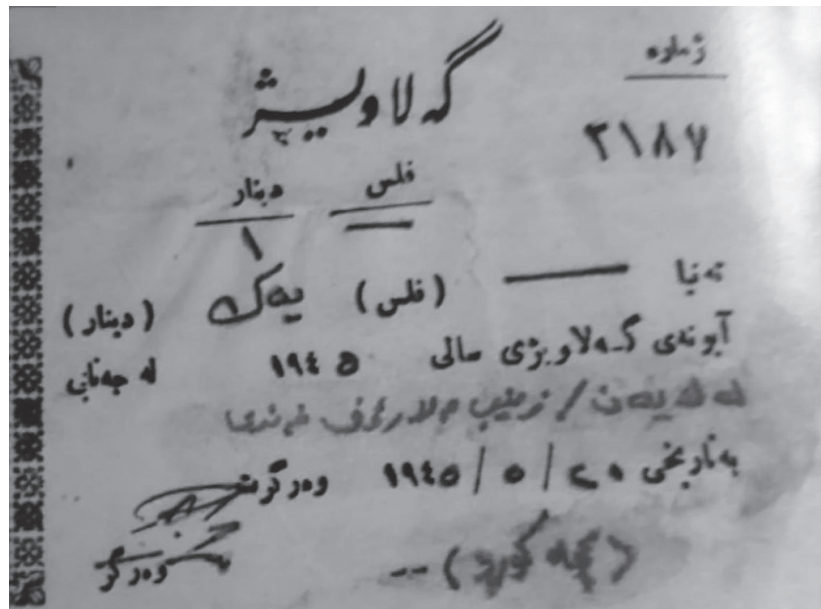 ژماره
گەلاوێژ
٢١٨٧
فلس دینار
— ١
تەنیا — (فلس) یەک (دینار)
آبونەی گەلاوێژی سالی ١٩٤٥ لە جەنابی
بەتاریخی ٢٠ / ٥ / ١٩٤٥ وەرگرت
وەرگر